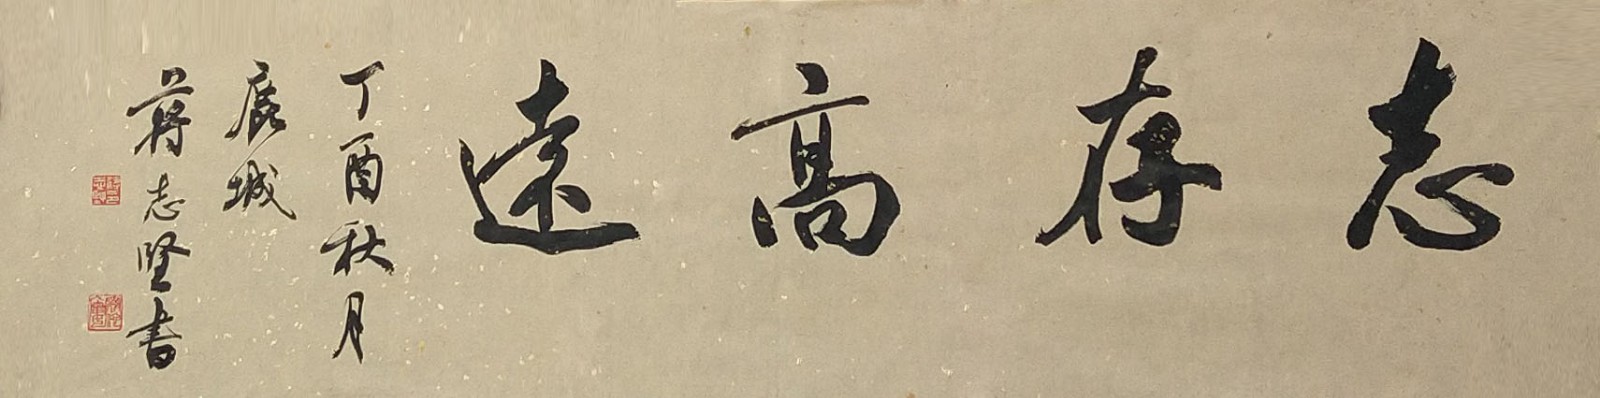 志存高遠
丁酉秋月
鹿城
蔣志堅書